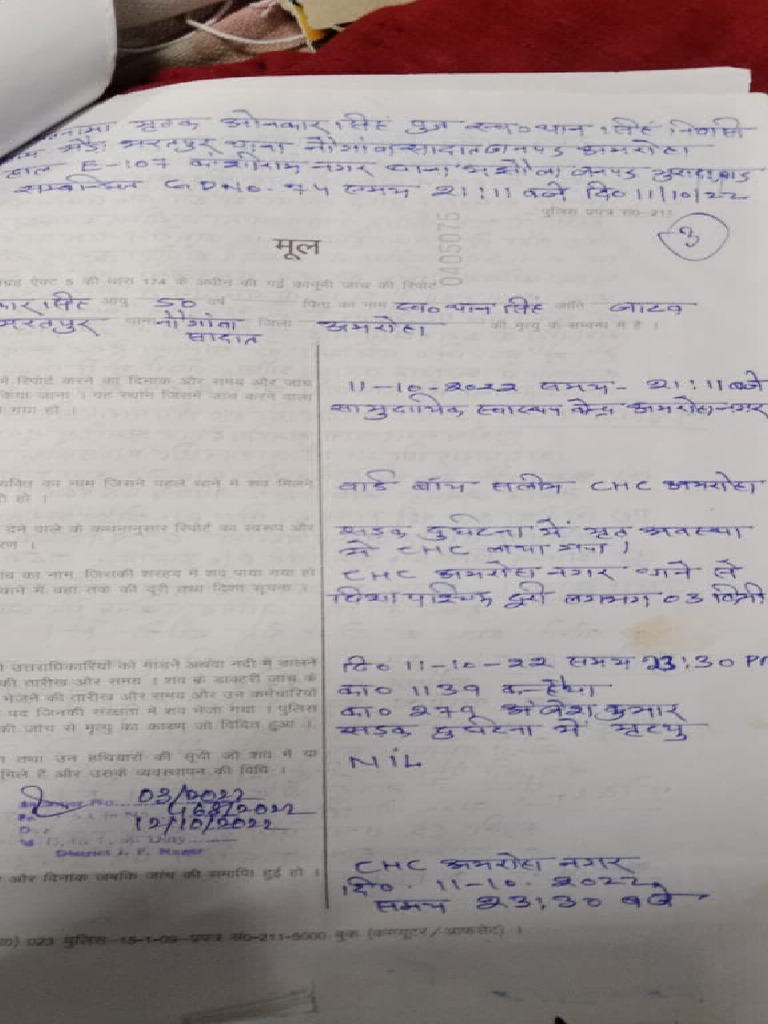 नामा मृतक ओनकार सिंह पुत्र स्व० थान सिंह निवासी
भरतपुर थाना नौगांवा सादात जनपद अमरोहा
हाल E-107 काशीराम नगर थाना मझौला जनपद मुरादाबाद
सम्बन्धित GD NO. 74 समय 21:11 बजे दि० 11/10/22
पुलिस प्रपत्र सं0-211
0405075
3
मूल
एक्ट 5 की धारा 174 के अधीन की गई कानूनी जांच की रिपोर्ट
कार सिंह आयु 50 वर्ष पिता का नाम स्व० थान सिंह जाति जाटव
भरतपुर थाना नौगांवा सादात जिला अमरोहा की मृत्यु के सम्बन्ध में है ।
में रिपोर्ट करने का दिनांक और समय और जांच
किया जाना । वह स्थान जिसमें जांच करने वाला
गया हो ।
11-10-2022 समय - 21:11 बजे
सामुदायिक स्वास्थ्य केन्द्र अमरोहा नगर
व्यक्ति का नाम जिसने पहले थाने में शव मिलने
दी हो ।
वार्ड बॉय सलीम CHC अमरोहा
देने वाले के कथनानुसार रिपोर्ट का स्वरूप और
सड़क दुर्घटना में मृत अवस्था
में CHC लाया गया ।
का नाम, जिसकी सरहद में शव पाया गया हो
थाने में वहां तक की दूरी तथा दिशा सूचना ।
CHC अमरोहा नगर थाने से
दिशा पश्चिम दूरी लगभग 03 किमी
उत्तराधिकारियों को गाड़ने अथवा नदी में डालने
की तारीख और समय । शव के डाक्टरी जांच के
भेजने की तारीख और समय और उन कर्मचारियों
पद जिनकी संरक्षता में शव भेजा गया । पुलिस
की जांच से मृत्यु का कारण जो विदित हुआ ।
दि० 11-10-22 समय 23:30 PM
का० 1139 कन्हैया
का० 279 अंकेश कुमार
सड़क दुर्घटना में मृत्यु
तथा उन हथियारों की सूची जो शव में या
मिले हैं और उसके व्यवस्थापन की विधि ।
NIL
03/2022
468/2022
12/10/2022
District J. P. Nagar
और दिनांक जबकि जांच की समाप्ति हुई हो ।
CHC अमरोहा नगर
दि०. 11-10-2022
समय 23:30 बजे
023 पुलिस-15-1-09-प्रपत्र सं0-211-5000 बुक (कम्प्यूटर/आफसेट) ।